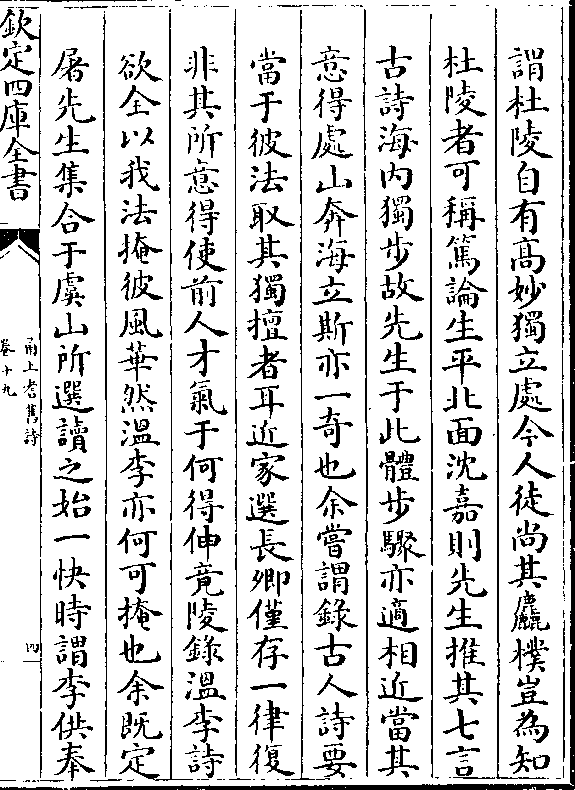 謂杜陵自有髙妙獨立處今人徒尚其麤樸豈為知
杜陵者可稱篤論生平北面沈嘉則先生推其七言
古詩海内獨步故先生于此體步驟亦適相近當其
意得處山奔海立斯亦一竒也余嘗謂錄古人詩要
當于彼法取其獨擅者耳近家選長卿僅存一律復
非其所意得使前人才氣于何得伸竟陵錄溫李詩
欲全以我法掩彼風華然溫李亦何可掩也余既定
屠先生集合于虞山所選讀之始一快時謂李供奉
欽定四庫全書
甬上耆舊詩
卷十九
四